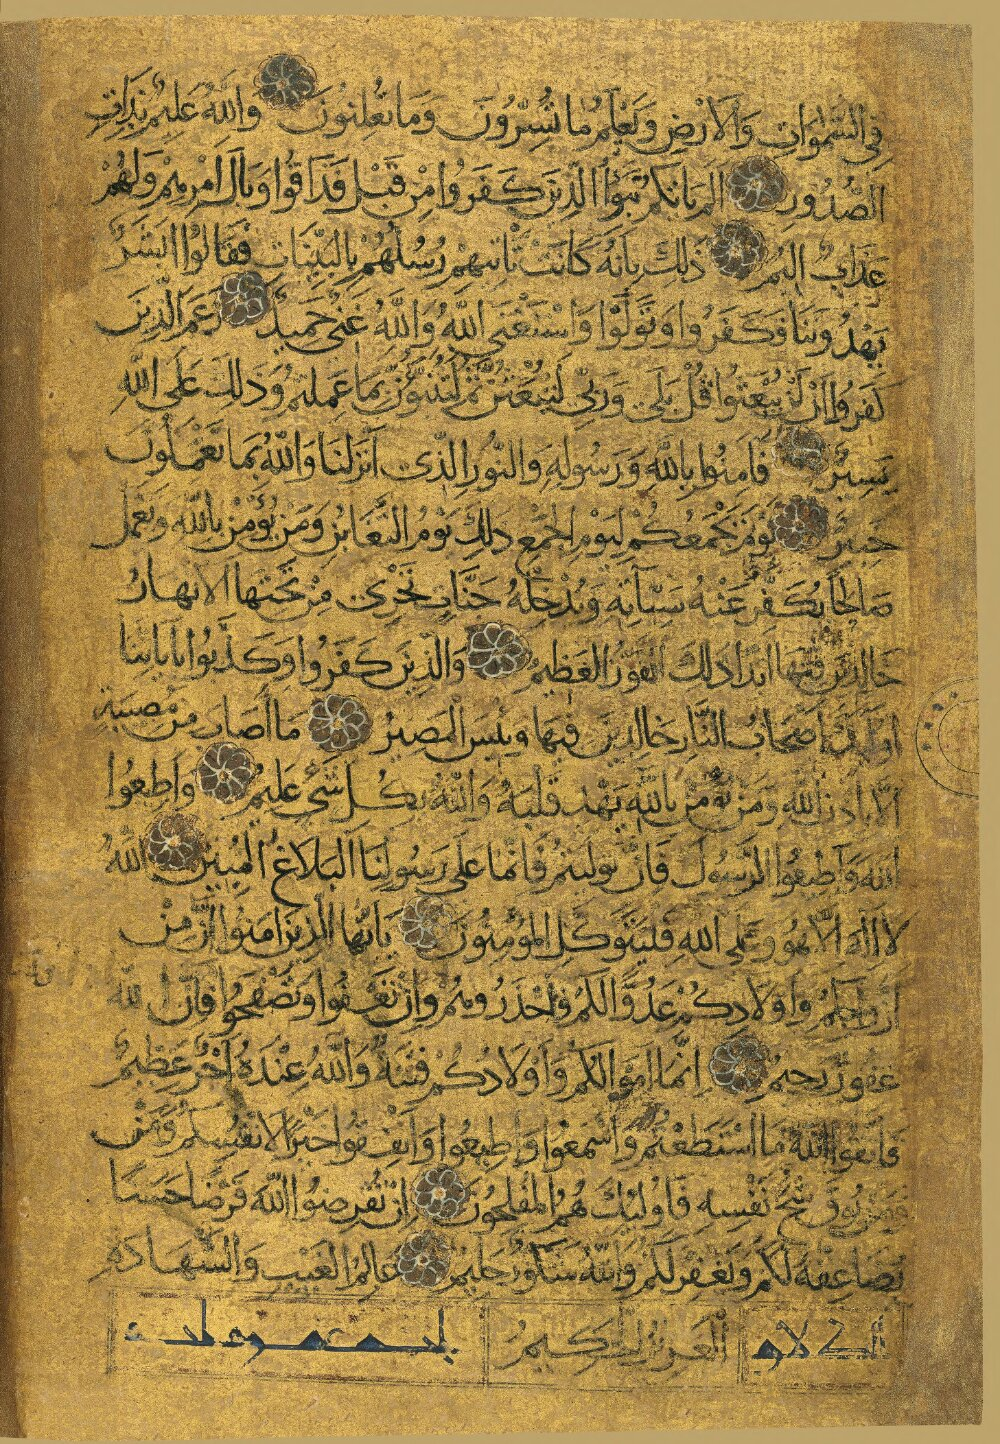 في السموات والارض ويعلم ما تسرون وما تعلنون والله عليم بذات
الصدور الم ياتكم نبؤا الذين كفروا من قبل فذاقوا وبال امرهم ولهم
عذاب اليم ذلك بانه كانت تاتيهم رسلهم بالبينات فقالوا ابشر
يهدوننا فكفروا وتولوا واستغنى الله والله غني حميد زعم الذين
كفروا ان لن يبعثوا قل بلى وربي لتبعثن ثم لتنبؤن بما عملتم وذلك على الله
يسير فامنوا بالله ورسوله والنور الذي انزلنا والله بما تعملون
خبير يوم يجمعكم ليوم الجمع ذلك يوم التغابن ومن يؤمن بالله ويعمل
صالحا يكفر عنه سيئاته ويدخله جنات تجري من تحتها الانهار
خالدين فيها ابدا ذلك الفوز العظيم والذين كفروا وكذبوا باياتنا
اولئك اصحاب النار خالدين فيها وبئس المصير ما اصاب من مصيبة
الا باذن الله ومن يؤمن بالله يهد قلبه والله بكل شيء عليم واطيعوا
الله واطيعوا الرسول فان توليتم فانما على رسولنا البلاغ المبين الله
لا اله الا هو وعلى الله فليتوكل المؤمنون يا ايها الذين امنوا ان من
ازواجكم واولادكم عدوا لكم فاحذروهم وان تعفوا وتصفحوا فان الله
غفور رحيم انما اموالكم واولادكم فتنة والله عنده اجر عظيم
فاتقوا الله ما استطعتم واسمعوا واطيعوا وانفقوا خيرا لانفسكم ومن
يوق شح نفسه فاولئك هم المفلحون ان تقرضوا الله قرضا حسنا
يضاعفه لكم ويغفر لكم والله شكور حليم عالم الغيب والشهادة
العزيز الحكيم